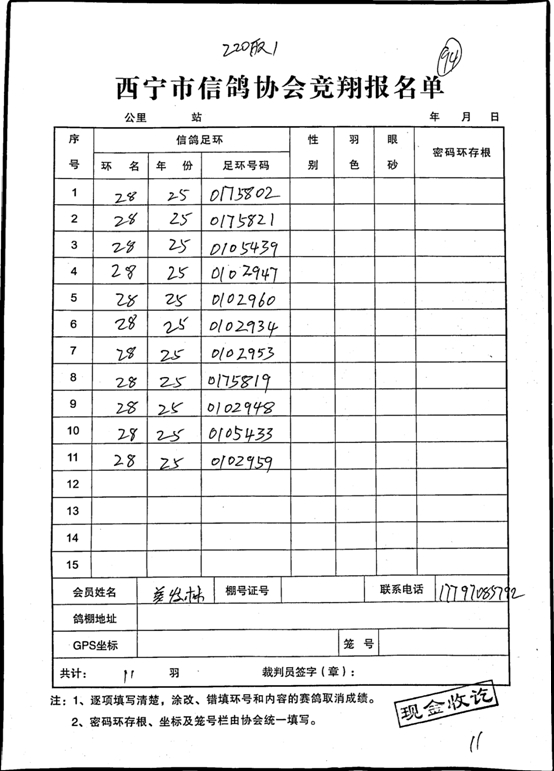 220版1
94
西宁市信鸽协会竞翔报名单
公里 站 年 月 日
序号 信鸽足环 性别 羽色 眼砂 密码环存根
环名 年份 足环号码
1 28 25 0175802
2 28 25 0175821
3 28 25 0105439
4 28 25 0102947
5 28 25 0102960
6 28 25 0102934
7 28 25 0102953
8 28 25 0175819
9 28 25 0102948
10 28 25 0105433
11 28 25 0102959
12
13
14
15
会员姓名 棚号证号 联系电话 17797085792
鸽棚地址
GPS坐标 笼号
共计: 11 羽 裁判员签字(章):
注:1、逐项填写清楚,涂改、错填环号和内容的赛鸽取消成绩。
2、密码环存根、坐标及笼号栏由协会统一填写。
现金收讫
11